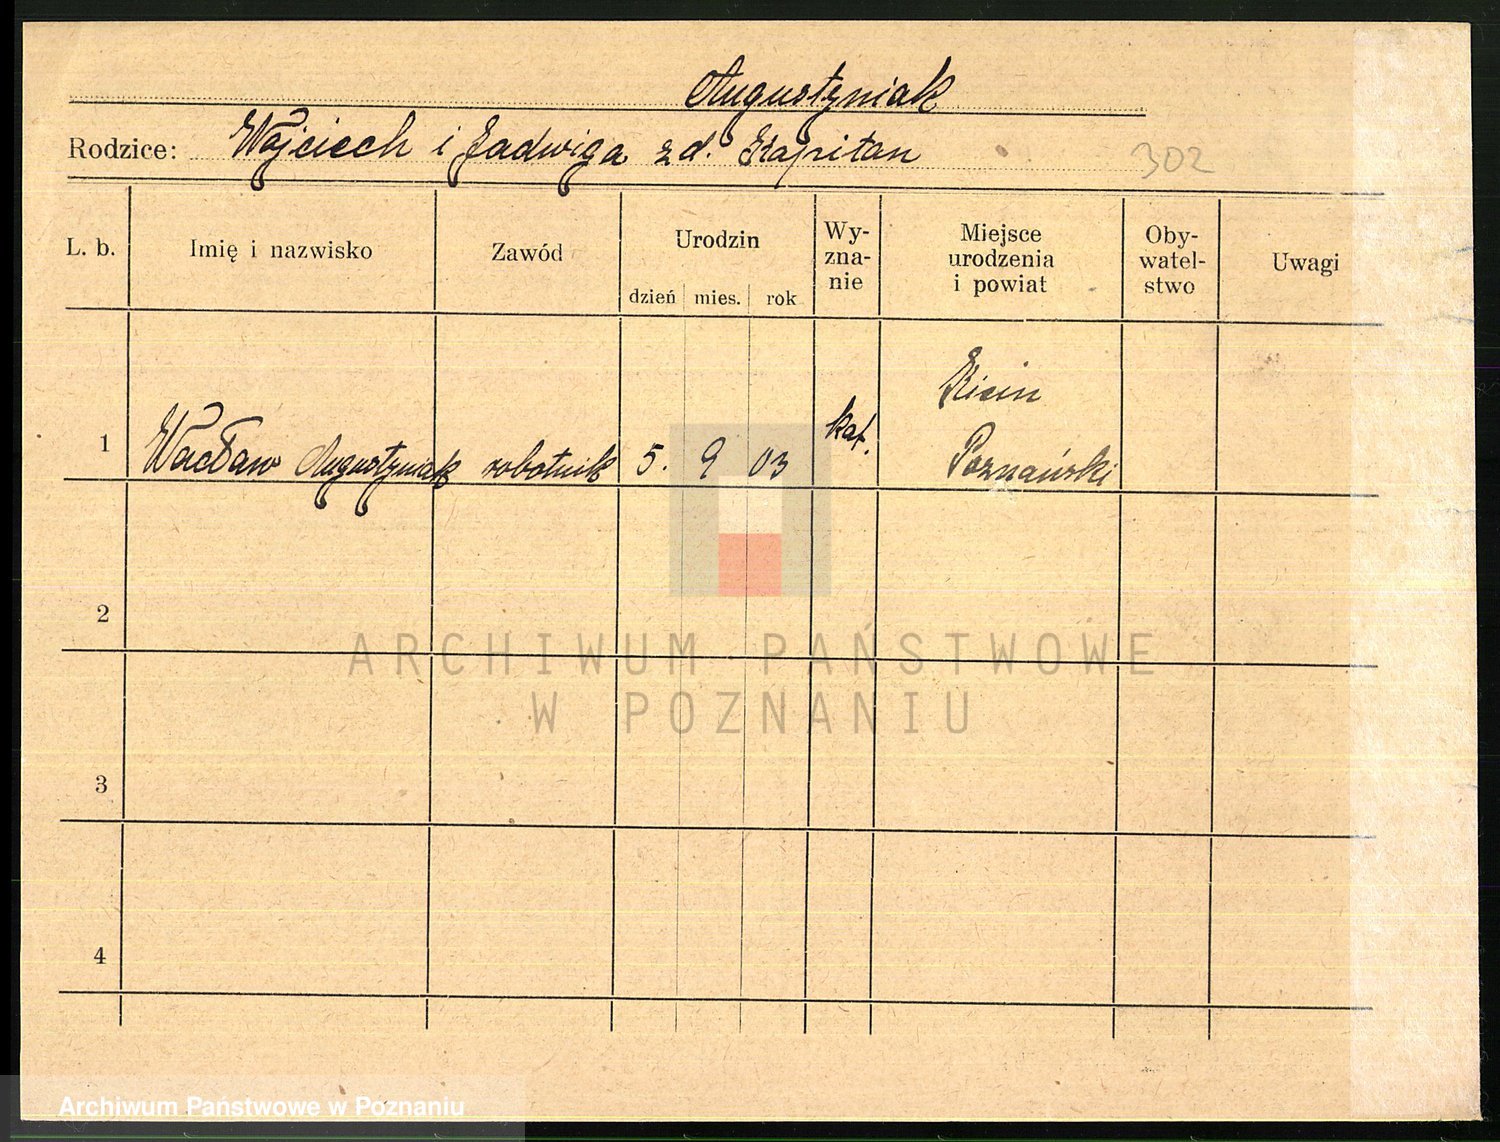 Augustyniak
Rodzice: Wojciech i Jadwiga zd. Kapitan
302
L. b. Imię i nazwisko Zawód Urodzin Wy-zna-nie Miejsce urodzenia i powiat Oby-watel-stwo Uwagi
dzień mies. rok
Kicin
1 Wacław Augustyniak robotnik 5. 9 03 kat. Poznański
2
ARCHIWUM PAŃSTWOWE
W POZNANIU
3
4
Archiwum Państwowe w Poznaniu